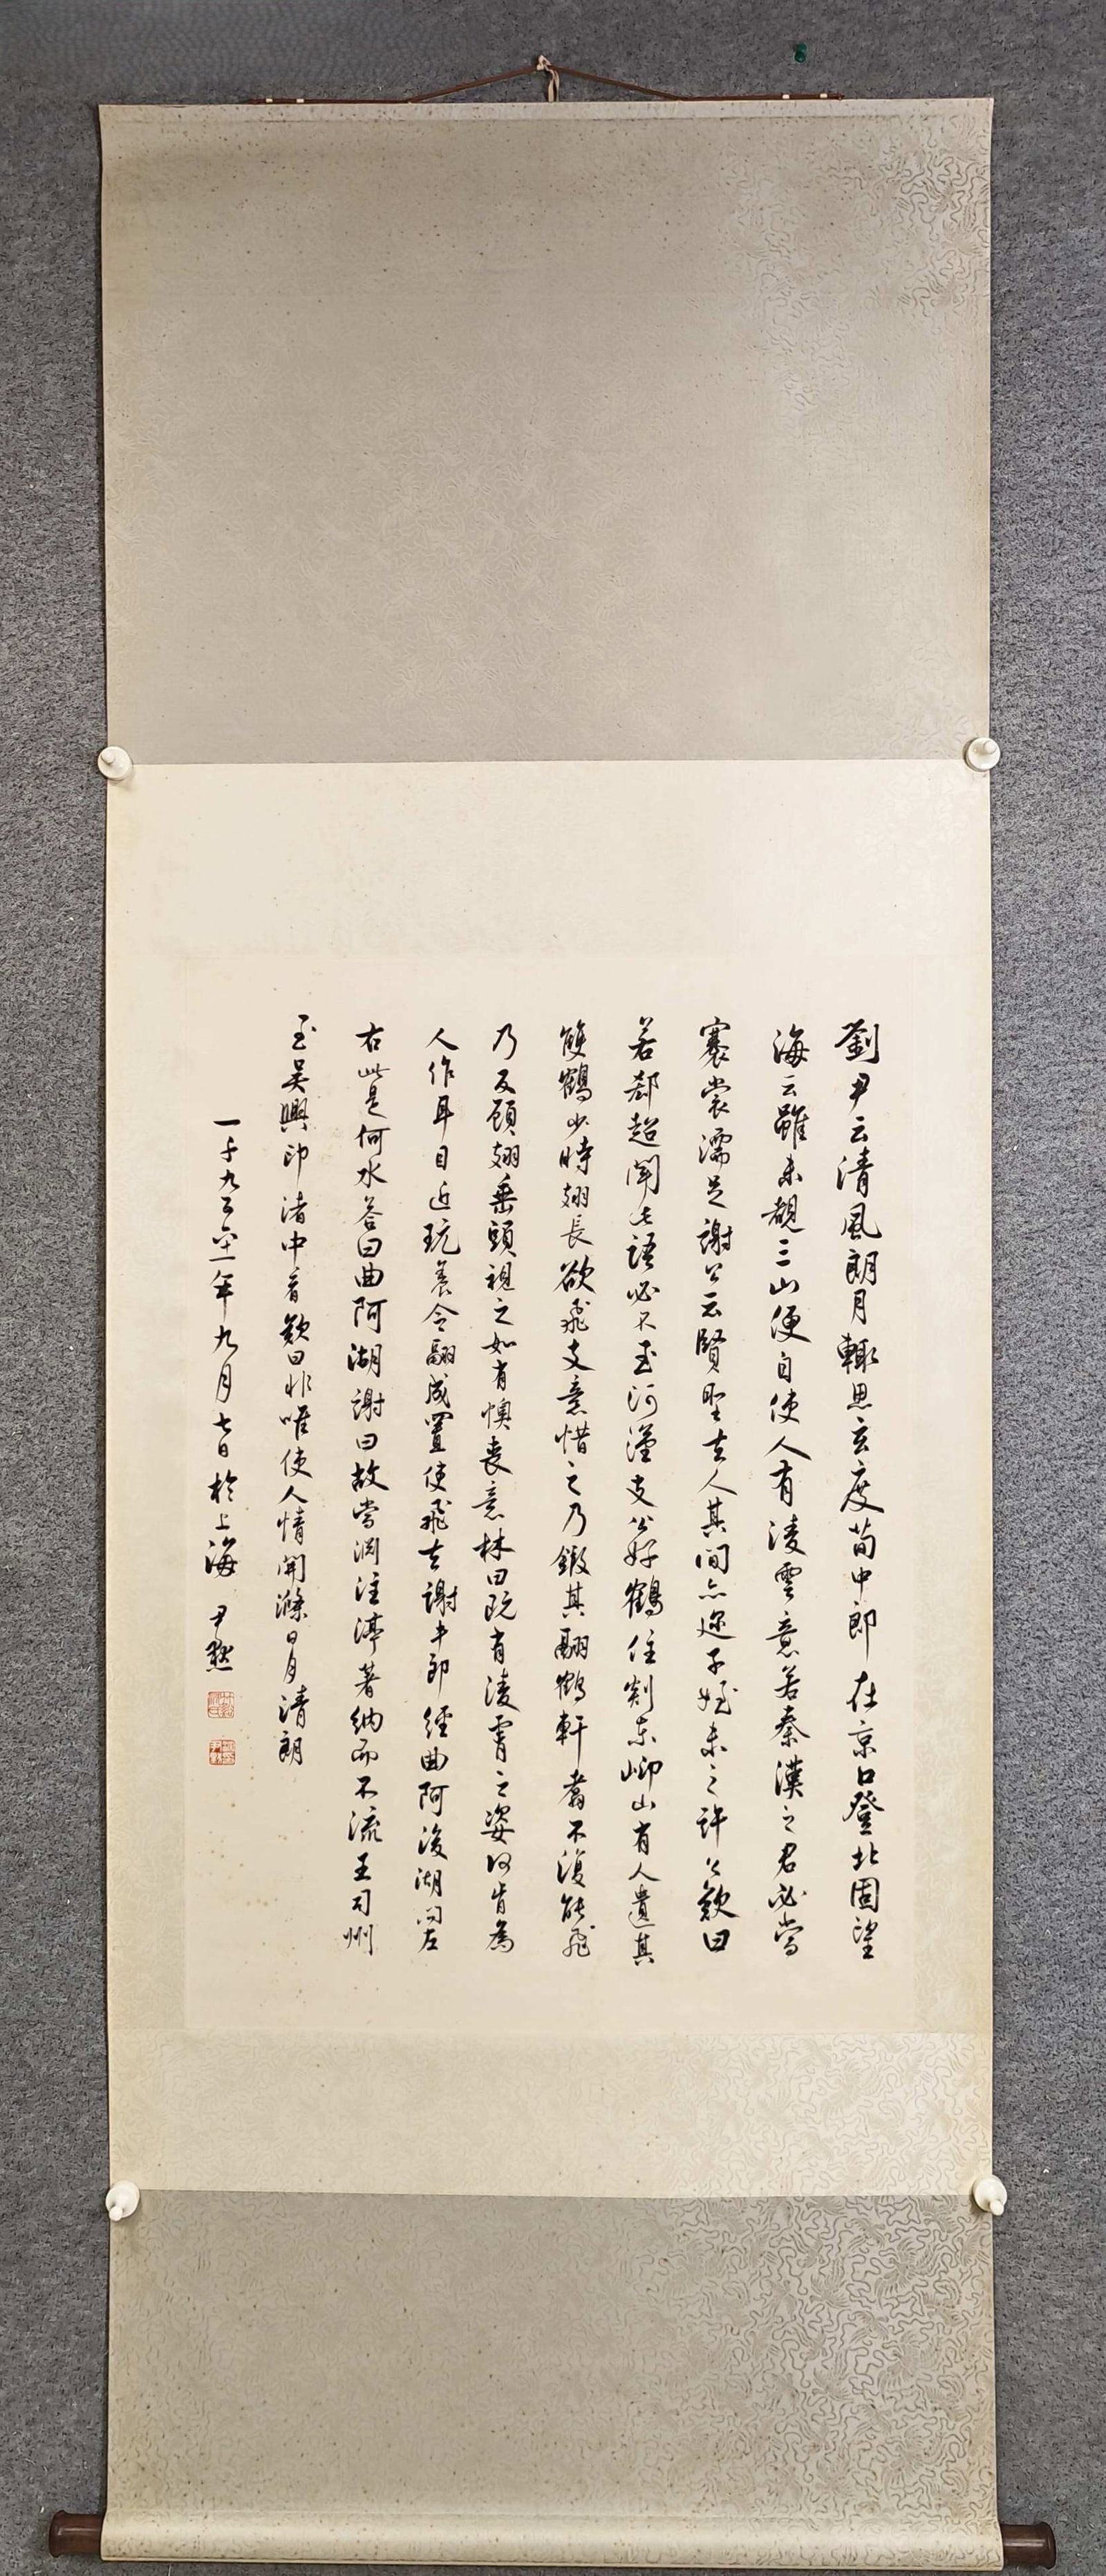 劉尹云清風朗月輒思玄度荀中郎在京口登北固望
海云雖未覩三山便自使人有淩雲意若秦漢之君必當
褰裳濡足謝公云賢聖去人其間亦邇子姪未之許公歎曰
若郗超聞此語必不至河漢支公好鶴住剡東岬山有人遺其
雙鶴少時翅長欲飛支意惜之乃鎩其翮鶴軒翥不復能飛
乃反顧翅垂頭視之如有懊喪意林曰既有淩霄之姿何肯為
人作耳目近玩養令翮成置使飛去謝中郎經曲阿後湖問左
右此是何水答曰曲阿湖謝曰故當淵注渟著納而不流王司州
至吳興印渚中看歎曰非唯使人情開滌日月清朗
一千九百六十一年九月七日於上海 尹默